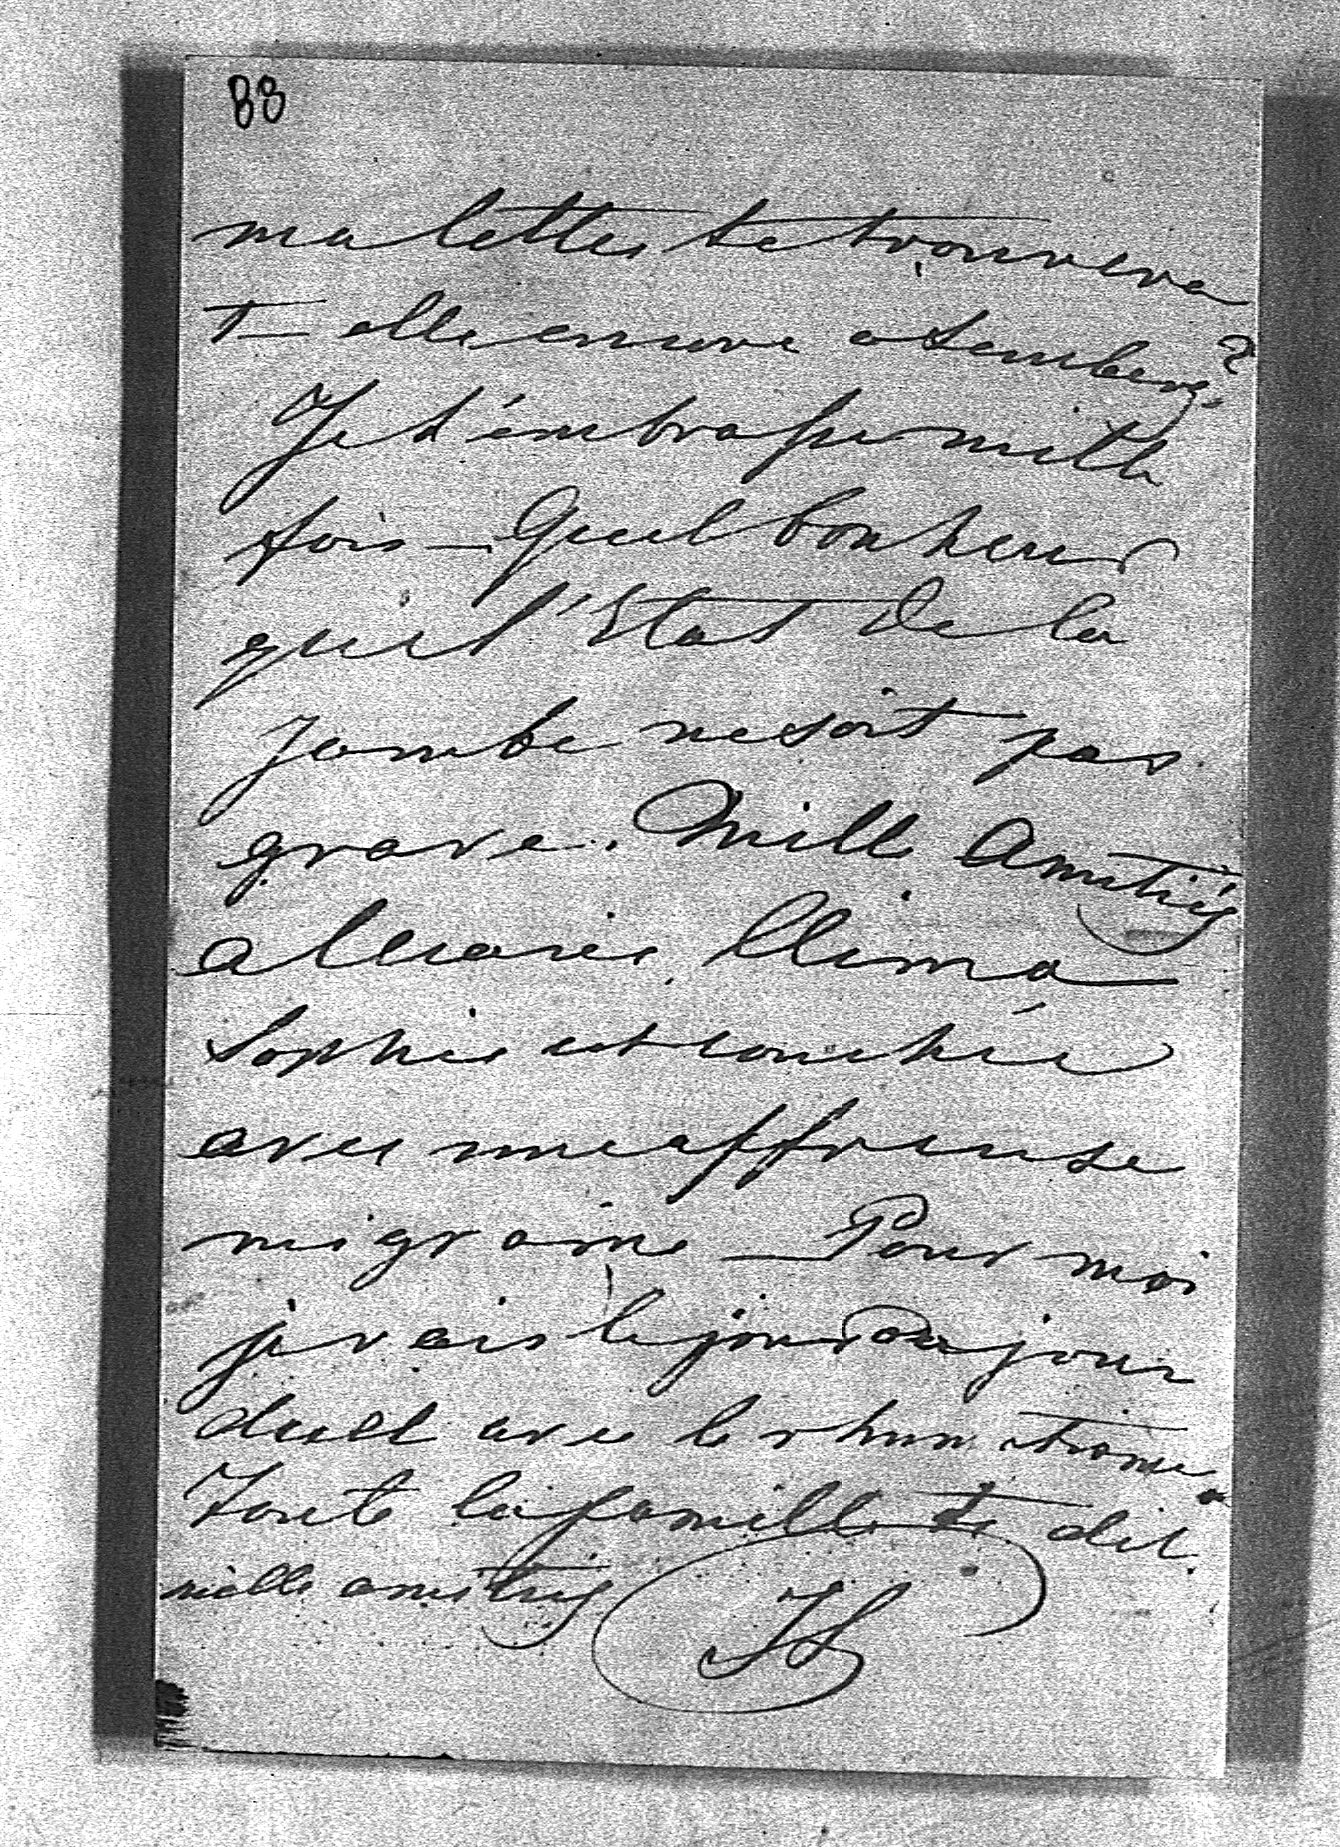 88
ma lettre te trouvera
t-elle encore a Lemberg?
Je t'embrasse mille
fois — Quel bonheur
que l'Etat de la
jambe ne soit pas
grave. Mille Amitiés
a Marie,
Sophie est couchée
avec une affreuse
migraine — Pour moi
je vais le jour au jour
duel avec le rhumatisme
Toute la famille te dit
mille amitiés